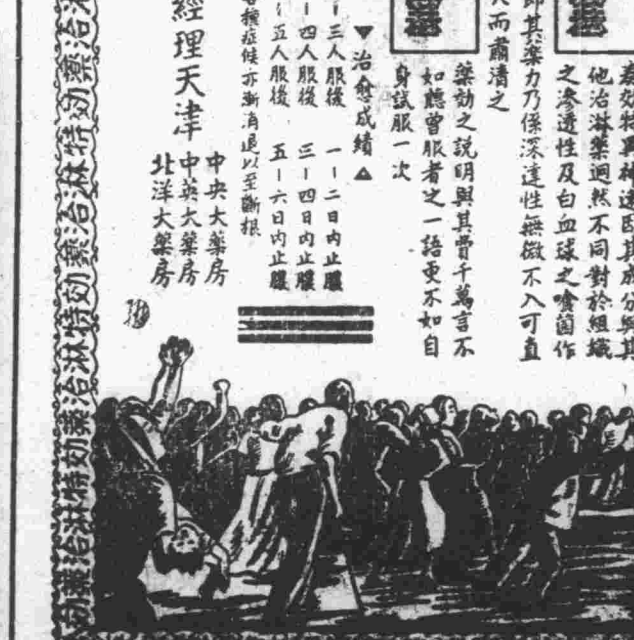 其藥効特異神速因其成分與其
他治淋藥迥然不同對於組織
之滲透性及白血球之噬菌作
即其藥力乃係深達性無微不入可直
而肅清之
藥効之說明與其費千萬言不
如聽曾服者之一語更不如自
身試服一次
▼治愈成績▲
三人服後 一-二日内止膿
四人服後 三-四日内止膿
五人服後 五-六日内止膿
種症候亦漸消退以至斷根
經理天津
中央大藥房
中英大藥房
北洋大藥房
治淋特効藥治淋特効藥治淋特効藥治淋特効